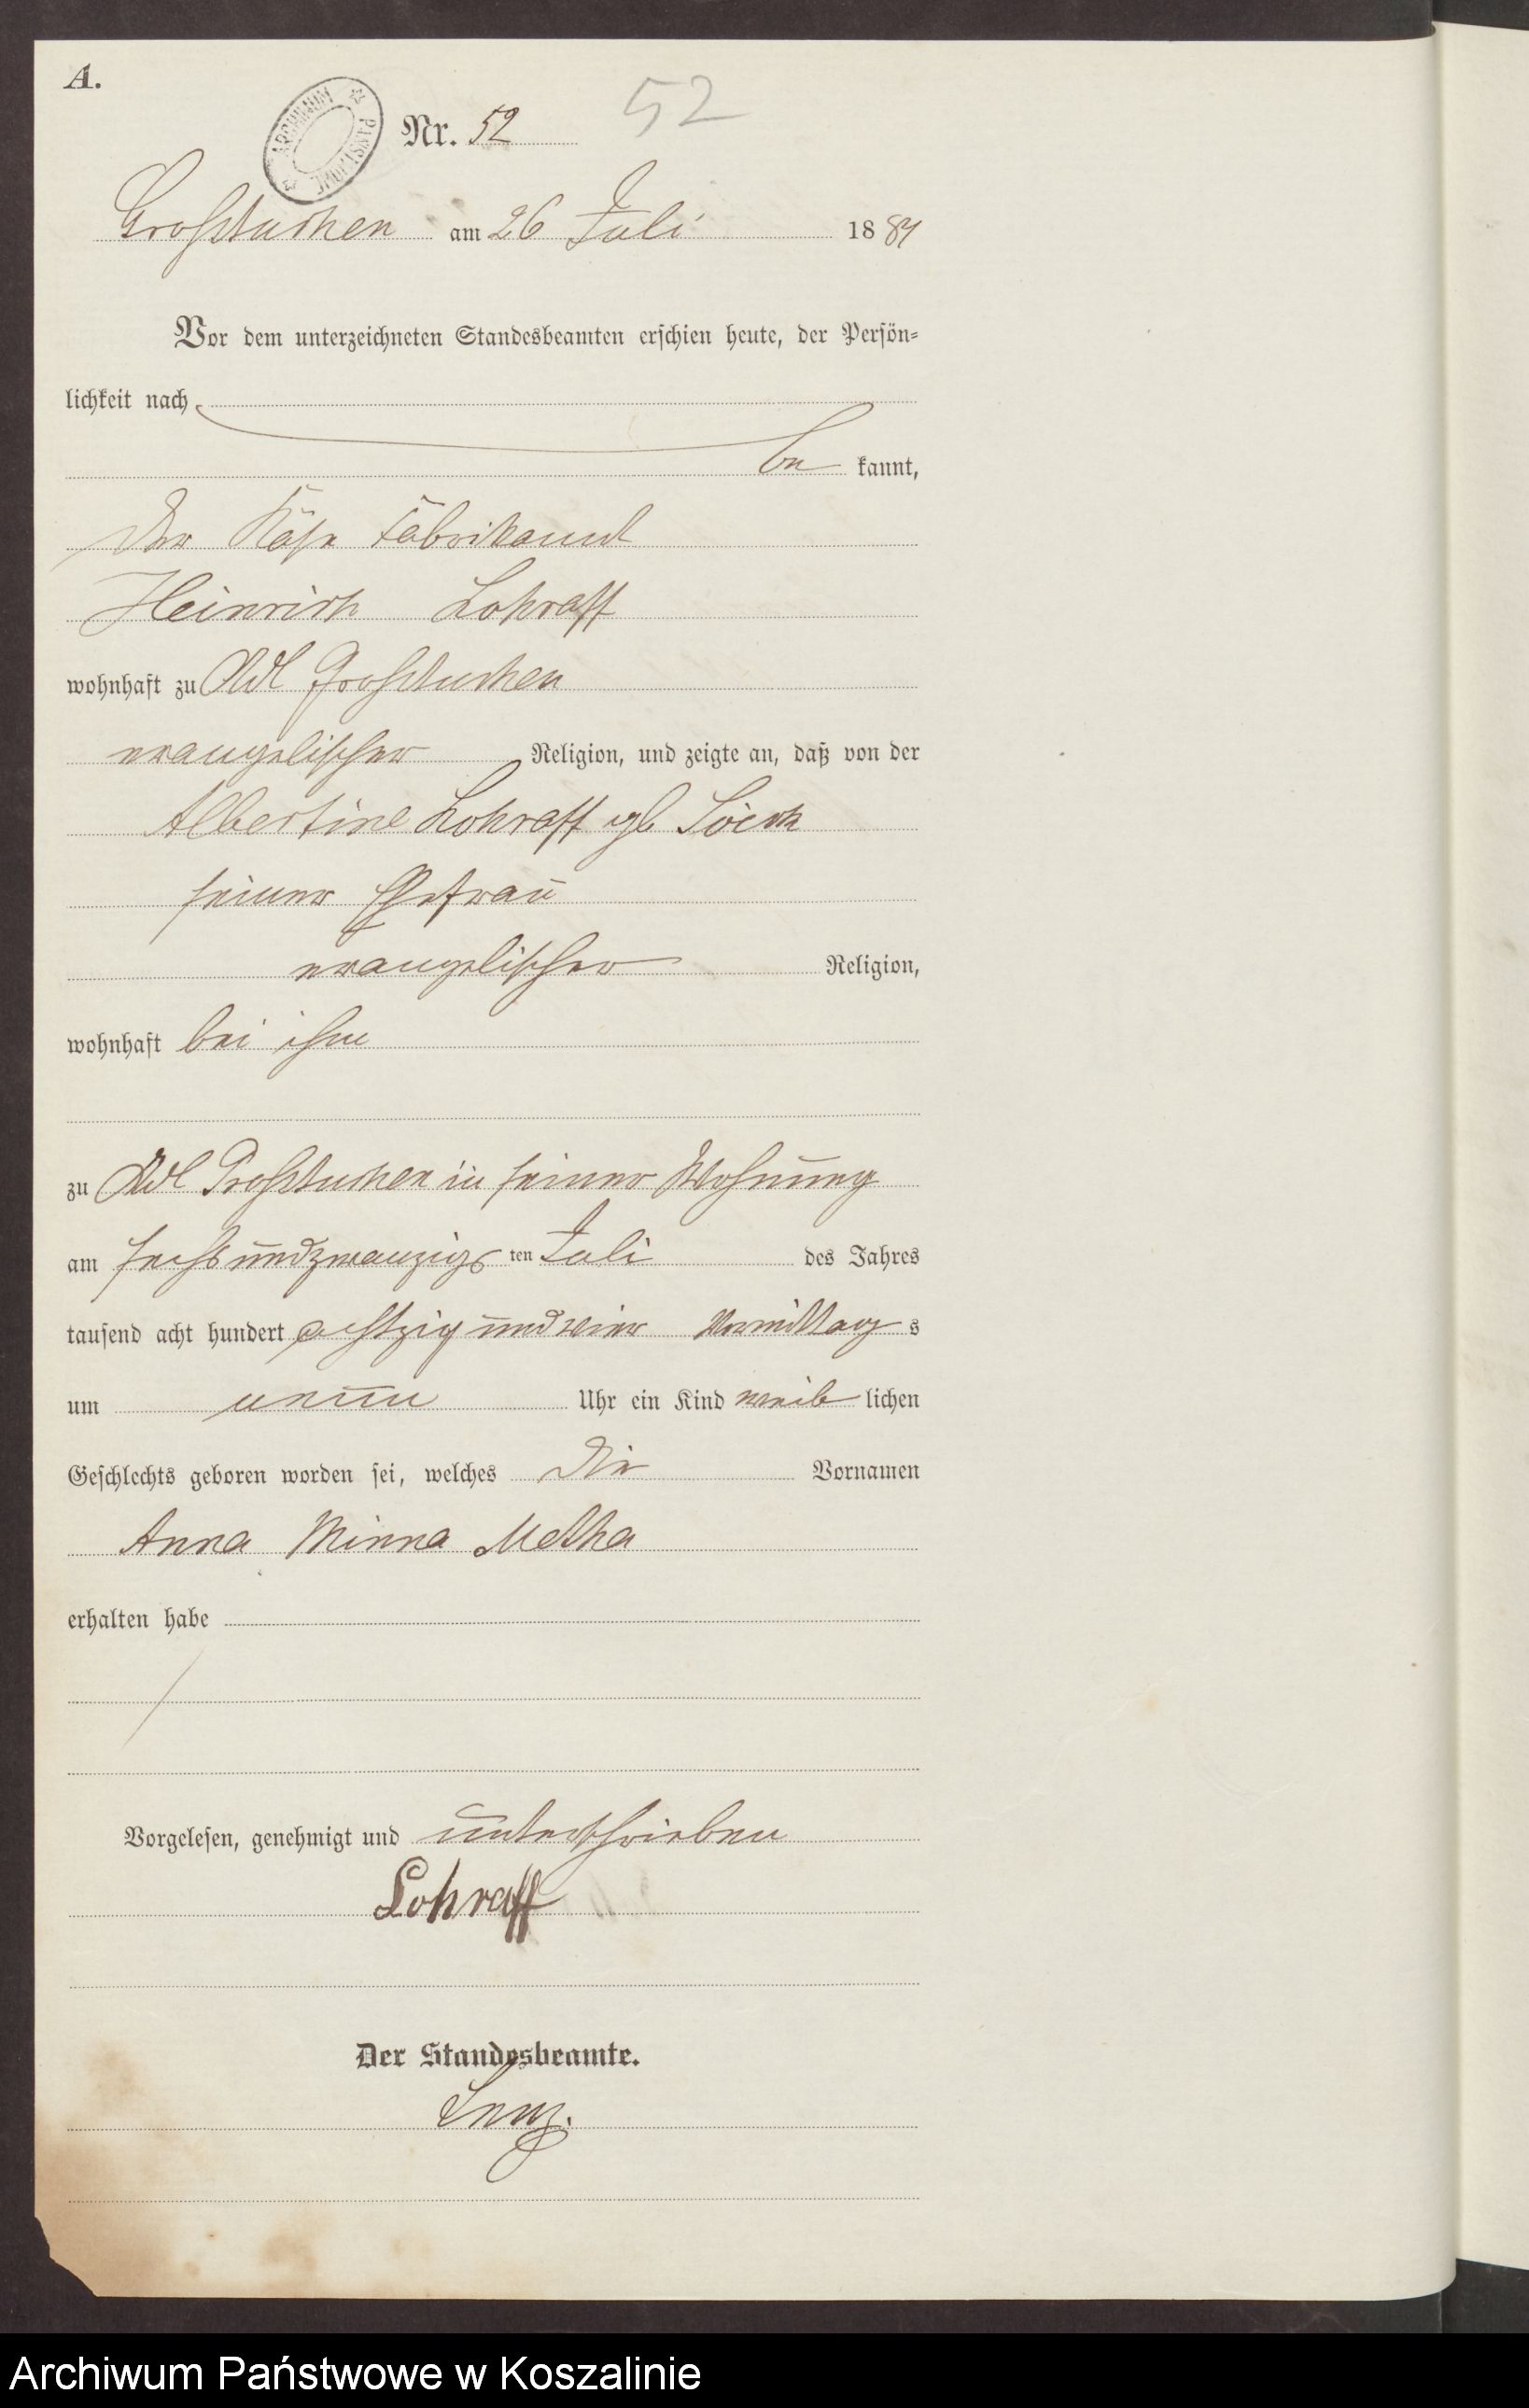 A.
ARCHIWUM PAŃSTWOWE
Nr. 52
52
Großtuchen am 26 Juli 1884
Vor dem unterzeichneten Standesbeamten erschien heute, der Persön-
lichkeit nach
be kannt,
Der Käse Fabrikandt
Heinrich Lohraff
wohnhaft zu Adl Großtuchen
evangelischer Religion, und zeigte an, daß von der
Albertine Lohraff gb
seiner Ehefrau
evangelischer Religion,
wohnhaft bei ihm
zu Adl Großtuchen in seiner Wohnung
am sechsundzwanzigs ten Juli des Jahres
tausend acht hundert achtzig und vier Vormittag s
um neun Uhr ein Kind weib lichen
Geschlechts geboren worden sei, welches die Vornamen
Anna Minna Metha
erhalten habe
Vorgelesen, genehmigt und unterschrieben
Lohraff
Der Standesbeamte.
Lenz.
Archiwum Państwowe w Koszalinie